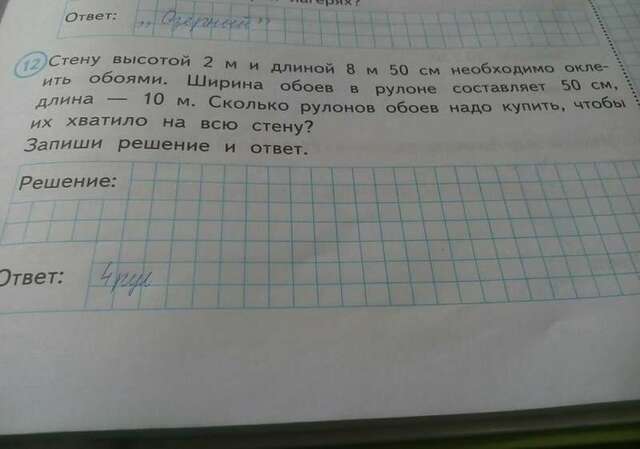 лагерях?
Ответ: „Озёрный"
12 Стену высотой 2 м и длиной 8 м 50 см необходимо окле-
ить обоями. Ширина обоев в рулоне составляет 50 см,
длина — 10 м. Сколько рулонов обоев надо купить, чтобы
их хватило на всю стену?
Запиши решение и ответ.
Решение:
Ответ: 4 рул